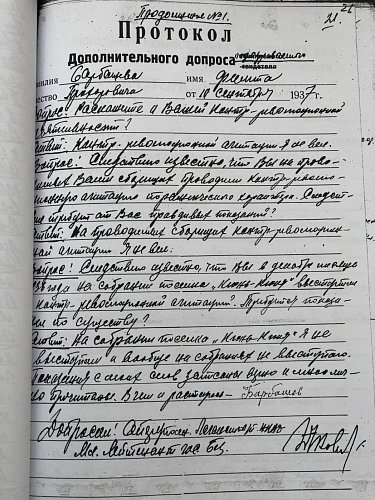 Продолжение №1.
21
Протокол
Дополнительного допроса обвиняемого
свидетеля
фамилия Барбашева имя Филиппа
отчество Григорьевича от 10 сентября 1937 г.
Вопрос! Расскажите о Вашей контр-революционной
деятельности?
Ответ: Контр.революционной агитации я не вел.
Вопрос! Следствию известно, что Вы на прово-
димых Вами сборищах проводили контр-револю-
ционную агитацию пораженческого характера. Следст-
вие требует от Вас правдивых показаний?
Ответ: На проводимых сборищах контр-революцион-
ной агитации я не вел.
Вопрос! Следствию известно, что Вы в декабре месяце
года на собрании поселка выступали
контр-революционной агитацией. Требуется показа-
ния по существу?
Ответ: На собрании поселка я не
выступал и вообще на собраниях не выступаю.
Показания с моих слов записаны верно и мною лич-
но прочитаны. В чем и расписуюсь Барбашов
Допросил!
Мл. Лейтенант гос. без.